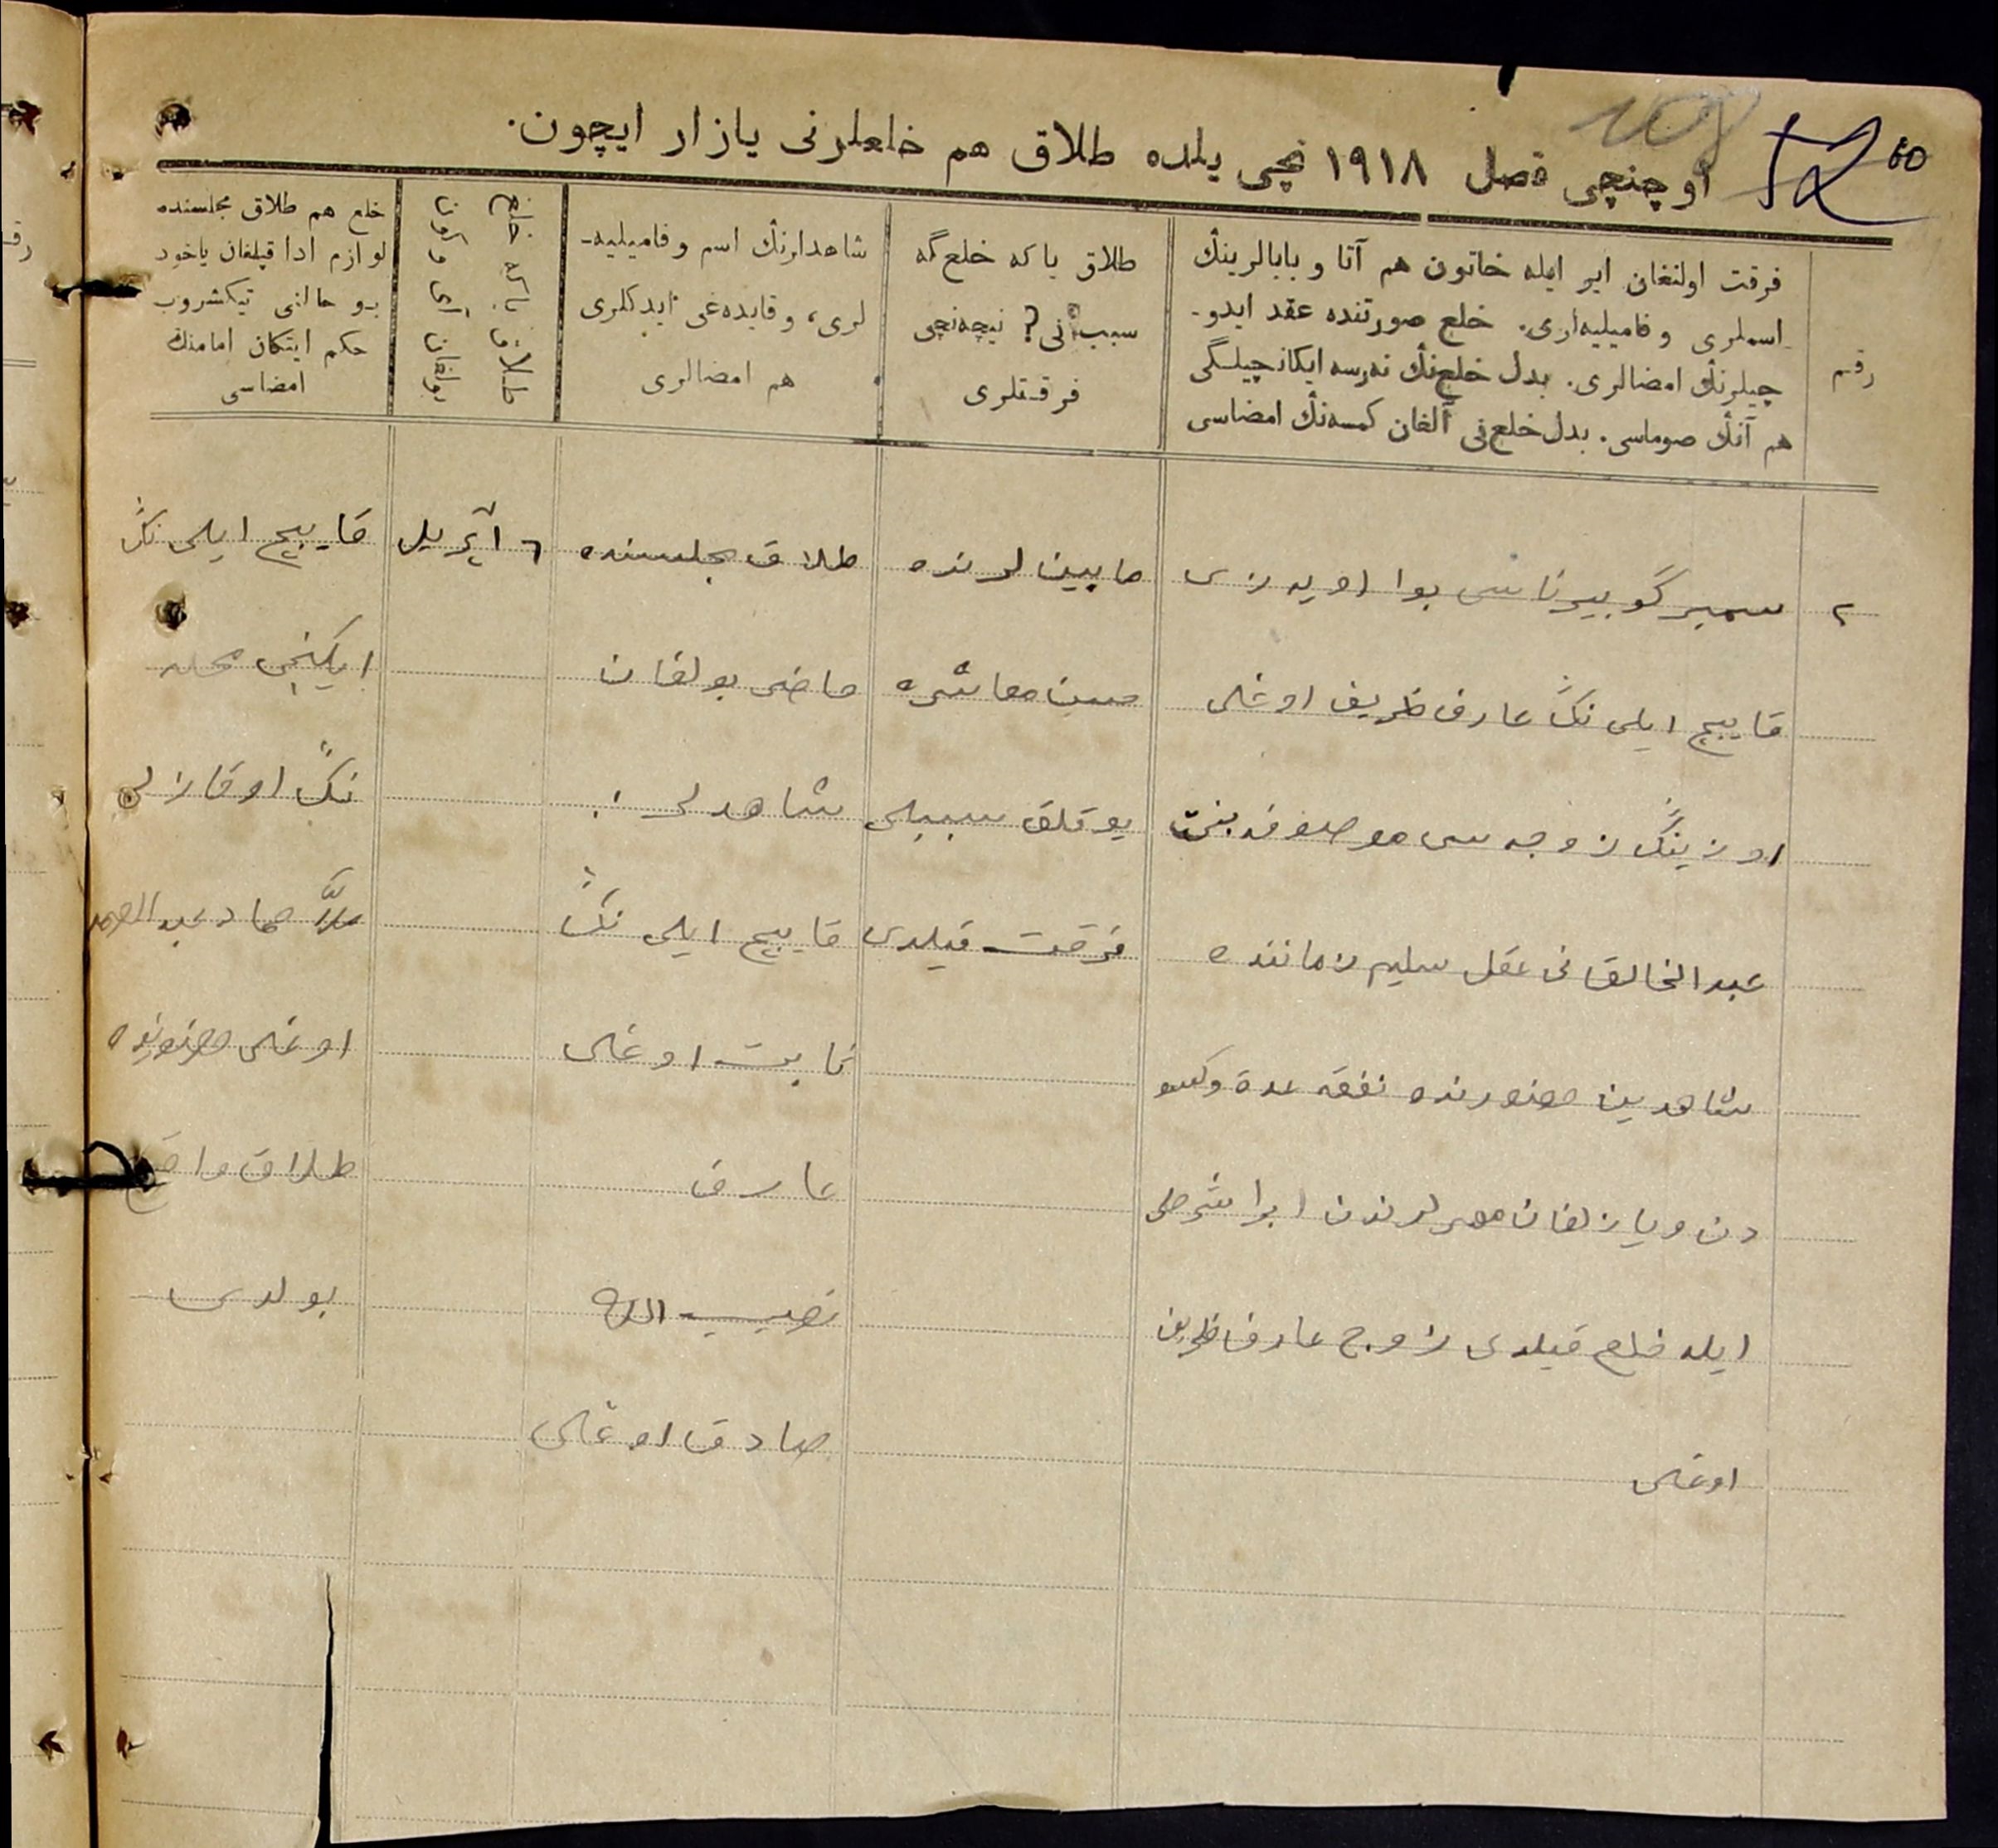 60
52
اوچنچی فصل ١٩١٨ نچی یلده طلاق هم خلعلرنی یازار ایچون.
رقم
فرقت اولنغان ایر ایله خاتون هم آتا و بابالرینڭ
اسملری و فامیلیه‌لری. خلع صورتنده عقد ایدو-
چیلرنڭ امضالری. بدل خلع‌نڭ نه‌رسه ایکانچیلگی
هم آنڭ صوماسی. بدل خلع‌نی آلغان کمسه‌نڭ امضاسی
طلاق یا که خلع گه
سبب نی؟ نیچه‌نچی
فرقتلری
شاهدلرنڭ اسم و فامیلیه-
لری، و قایده‌غی ایدکلری
هم امضالری
خلع هم طلاق مجلسنده
لوازم ادا قیلغان یاخود
بو حالنی تیکشروب
حکم ایتکان امامنڭ
امضاسی
٢
سمبر گوبیرناسی بوا اویه زی
قایبچ ایلی نڭ عارف ظریف اوغلی
اوزینڭ زوجه سی موصوفه بنت
عبد الخالقنی عقل سلیم زماننده
شاهدین حضورنده نفقه عدة وکسو
دن و یازلغان مهرلرندن ابرا شرطی
ایله خلع قیلدی زوج عارف ظریف
اوغلی
مابینلرنده
حسن معاشره
یوقلق سببلی
فرقت قیلدی
طلاق مجلسنده
حاضر بولغان
شاهدلر:
قایبچ ایلی نڭ
ثابت اوغلی
عارف
نصیب الله
صادق اوغلی
٦ آپریل
قایبچ ایلی نڭ
ایکنچی محله
نڭ اوقازلی
ملا حماد عبد الصمد
اوغلی حضورنده
طلاق واقع
بولدی